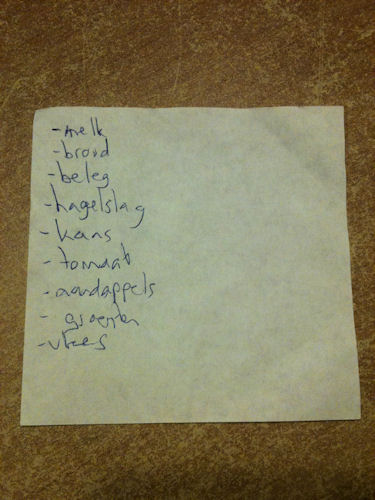 - melk
- brood
- beleg
- hagelslag
- kaas
- tomaat
- aardappels
- groenten
- vlees